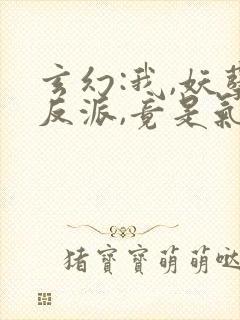 玄幻:我,妖孽
反派,竟是氣
猪寶寶萌萌哒